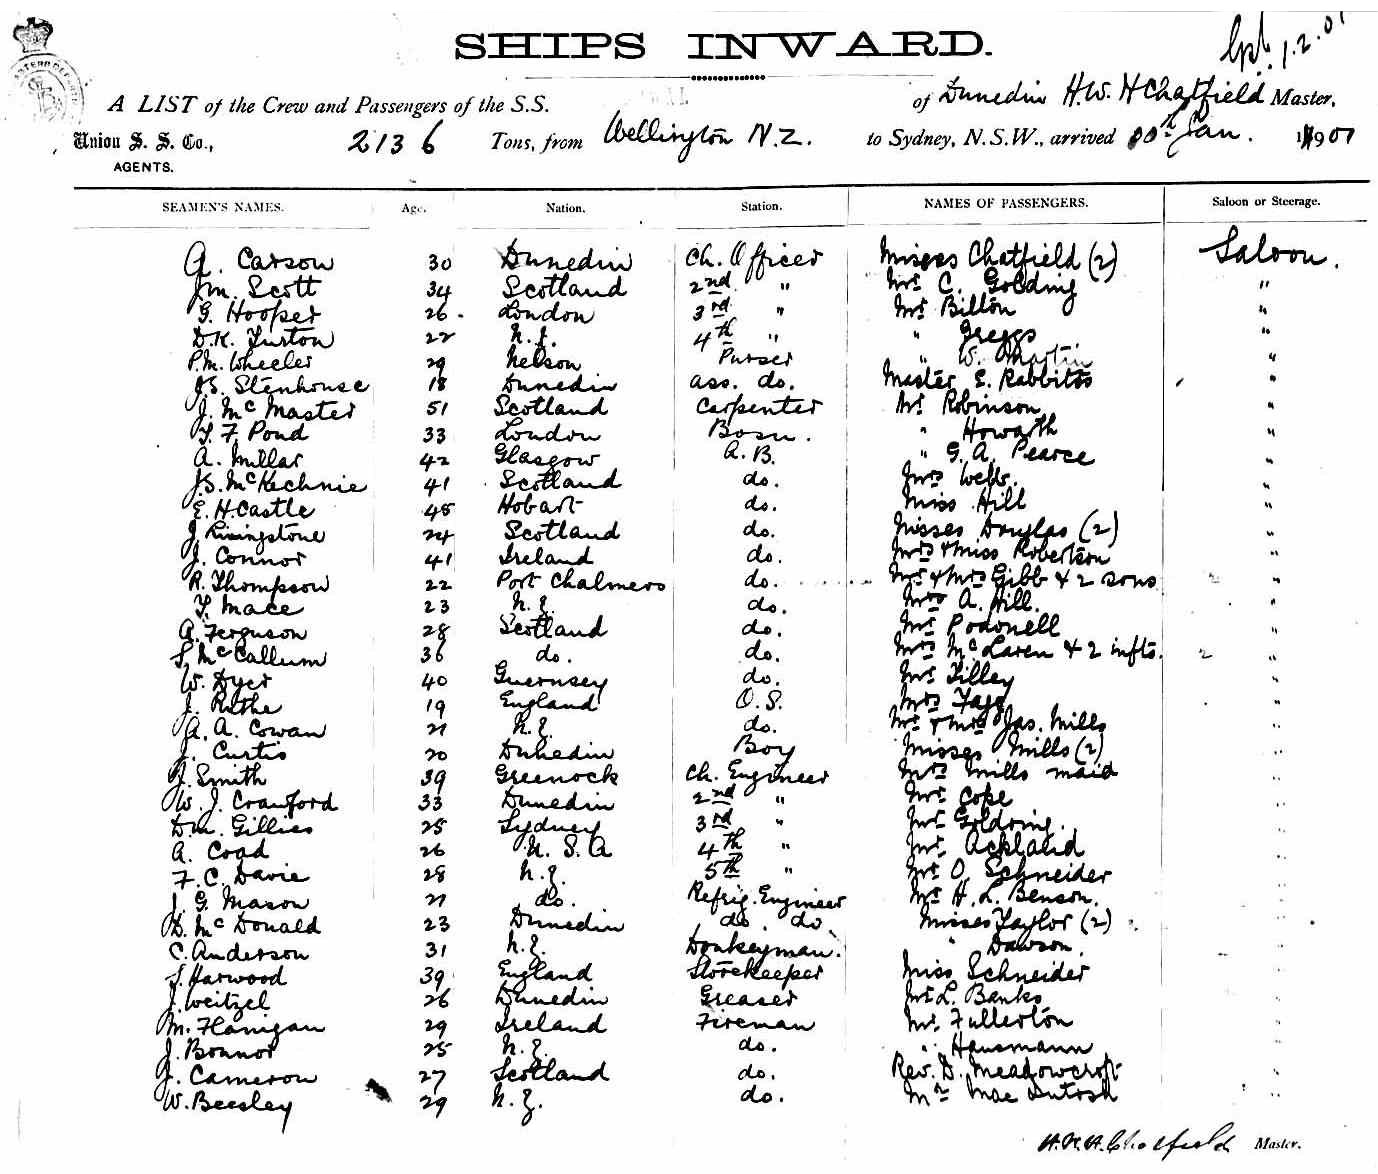 SHIPS INWARD.
1.2.01
A LIST of the Crew and Passengers of the S.S. of Dunedin H.W.H Chatfield Master,
Union S. S. Co., AGENTS. 2136 Tons, from Wellington N.Z. to Sydney, N.S.W., arrived Jan. 1901
SEAMEN'S NAMES. Age. Nation. Station. NAMES OF PASSENGERS. Saloon or Steerage.
A. Carson 30 Dunedin Ch. Officer Misses Chatfield (2) Saloon.
Jm. Scott 34 Scotland 2nd " Mr. C. Golding "
G. Hooper 26 London 3rd " Mr Bilton "
D.K. Turton 22 N.Z. 4th " " Greggs "
P.M. Wheeler 29 Nelson Purser " W. Martin "
J.S. Stenhouse 18 Dunedin ass. do. Master E. Rabbitts "
J. McMaster 51 Scotland Carpenter Mr Robinson "
T. F. Pond 33 London Bosn. " Howarth "
A. Millar 42 Glasgow A.B. " G. A. Pearce "
J.S. McKechnie 41 Scotland do. Mrs Webb. "
E. H. Castle 45 Hobart do. Miss Hill "
J. Livingstone 24 Scotland do. Misses Douglas (2) "
J. Connor 41 Ireland do. Mrs & Miss Robertson "
R. Thompson 22 Port Chalmers do. Mr & Mrs Gibb & 2 sons 2 "
T. Mace 23 N.Z. do. Mrs A. Hill. "
A. Ferguson 28 Scotland do. Mr "
S. McCallum 36 do. do. Mrs McLaren & 2 infts. 2 "
W. Dyer 40 Guernsey do. Mr Tilley "
J. Ruthe 19 England O.S. Mrs Fagg "
A. A. Cowan 21 N.Z. do. Mr & Mrs Jas. Mills "
J. Curtis 20 Dunedin Boy Misses Mills (2) "
J. Smith 39 Greenock Ch. Engineer Mrs Mills maid "
W. J. Crawford 33 Dunedin 2nd " Mr Cope "
Dm. Gillies 25 Sydney 3rd " Mr Goldring. "
A. Coad 26 U. S. A 4th " Mr. Ackland "
F. C. Davie 28 N.Z. 5th " Mr O. Schneider "
J. G. Mason 21 do. Refrig. Engineer Mr H. L. Benson. "
D. McDonald 23 Dunedin do do Misses Taylor (2) "
C. Anderson 31 N.Z. Donkeyman. " Dawson. "
S. Harwood 39 England Storekeeper Miss Schneider "
J. Weitzel 26 Dunedin Greaser Mr L. Banks "
M. Flanigan 29 Ireland Fireman Mr. Fullerton "
J. Bonnor 25 N.Z. do. " Hausmann "
J. Cameron 27 Scotland do. Rev. D. Meadowcroft "
W. Beesley 29 N.Z. do. Mr MacIntosh "
H.W.H. Chatfield Master.